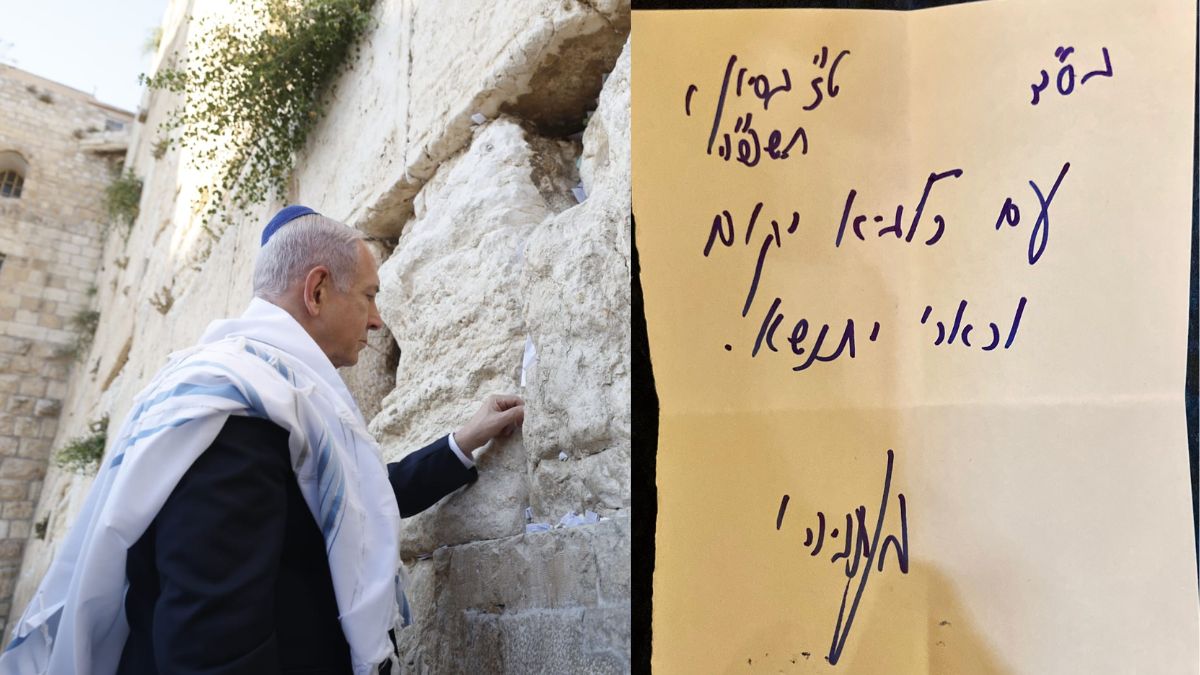 בס"ד
ט"ז בסיוון
תשפ"ה
עם כלביא יקום
וכארי יתנשא.
נתניהו